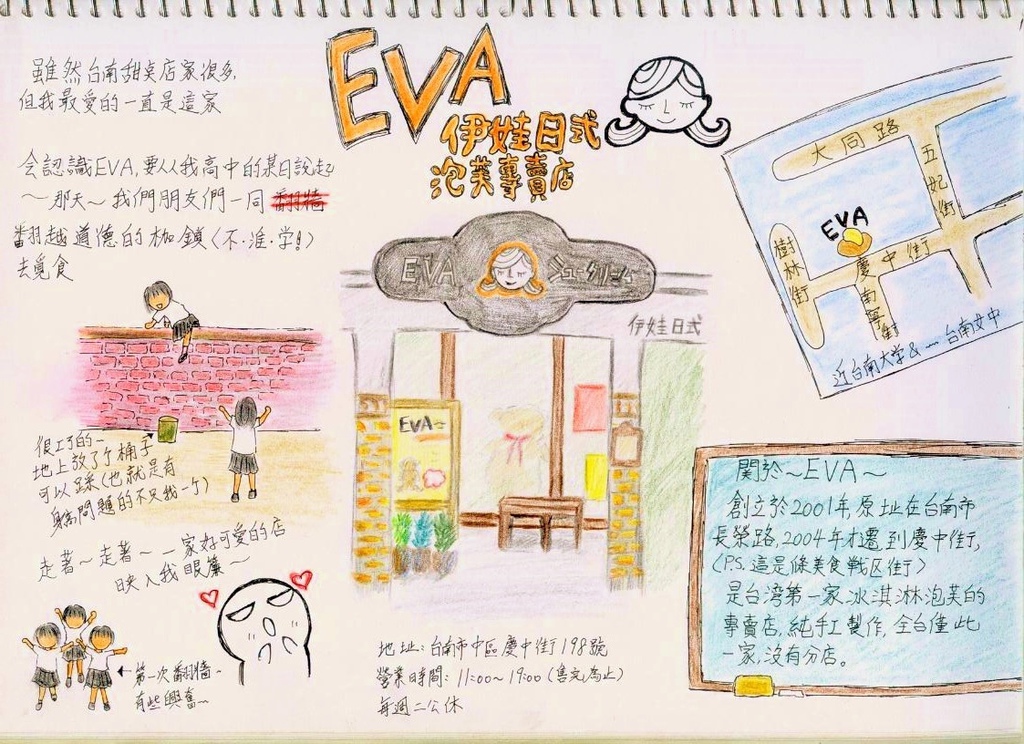 雖然台南甜點店家很多,
但我最愛的一直是這家
EVA
伊娃日式
泡芙專賣店
会認識EVA,要从我高中的某日說起
~那天~我們朋友們一同翻牆
翻越道德的枷鎖(不·准·学!)
去覓食
很巧的~
地上放了个桶子
可以踩(也就是有
身高問題的不只我一个)
走著~走著~一家好可愛的店
映入我眼簾~
←第一次翻牆~
有些興奮~
EVA
シュークリーム
伊娃日式
EVA
地址:台南市中區慶中街198號
營業時間:11:00~19:00(售完為止)
每週二公休
大同路
五妃街
EVA
樹林街
慶中街
南寧街
近台南大学&台南女中
關於~EVA~
創立於2001年,原址在台南市
長榮路,2004年才遷到慶中街,
(P.S.這是條美食戰区街)
是台湾第一家冰淇淋泡芙的
專賣店,純手工製作,全台僅此
一家,沒有分店。